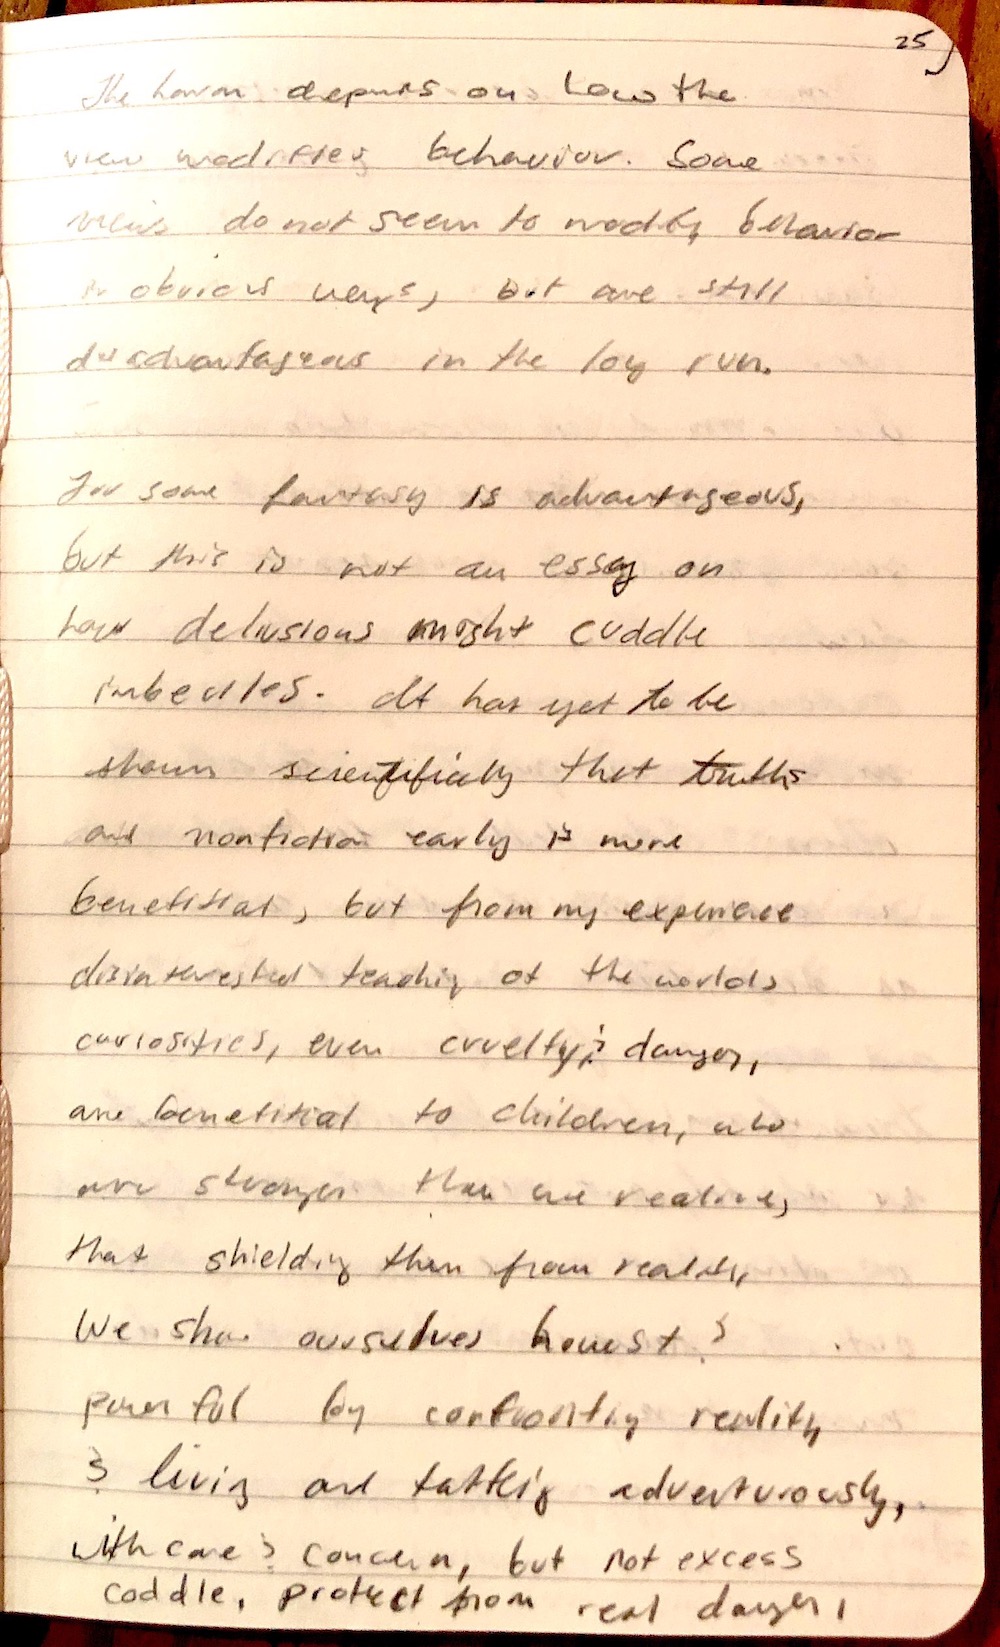 25
The harm depends on how the
view modifies behavior. Some
views do not seem to modify behavior
in obvious ways, but are still
disadvantageous in the long run.
For some fantasy is advantageous,
but this is not an essay on
how delusions might cuddle
imbeciles. It has yet to be
shown scientifically that truths
and nonfiction early is more
benefitial, but from my experience
disinterested teaching of the worlds
curiosities, even cruelty & danger,
are benefitial to children, who
are stronger than we realize,
that shielding them from reality,
We show ourselves honest &
powerful by confronting reality
& living and adventurously,
with care & concern, but not excess
coddle, protect from real danger,